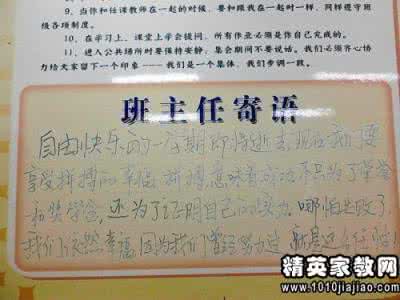 9、当你和任课教师在一起的时候，要和跟我在一起时一样，同样遵守班
级各项制度。
10、在学习上，课堂上学会提问，所有作业必须是你自己完成的。
11、进入公共场所时要保持安静；集会期间不要说话。我们必须齐心协
力给大家留下一个印象——我们是一个集体，我们步调一致。
班主任寄语
自由快乐的一星期即将逝去现在我们要
享受拼搏的幸福 拼搏意味着成功不只为了荣誉
和奖学金，还为了证明自己的实力．哪怕失败了
我们依然幸福因为我们曾经努力过
精英家教网
www.1010jiajiao.com